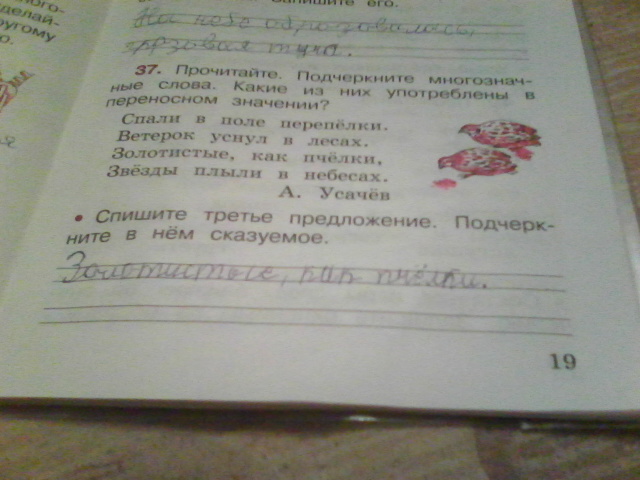 ного-
делай-
ругому
о.
запишите его.
На небе образовалась
грозовая туча.
37. Прочитайте. Подчеркните многознач-
ные слова. Какие из них употреблены в
переносном значении?
Спали в поле перепёлки.
Ветерок уснул в лесах.
Золотистые, как пчёлки,
Звёзды плыли в небесах.
А. Усачёв
• Спишите третье предложение. Подчерк-
ните в нём сказуемое.
Золотистые, как пчёлки.
19